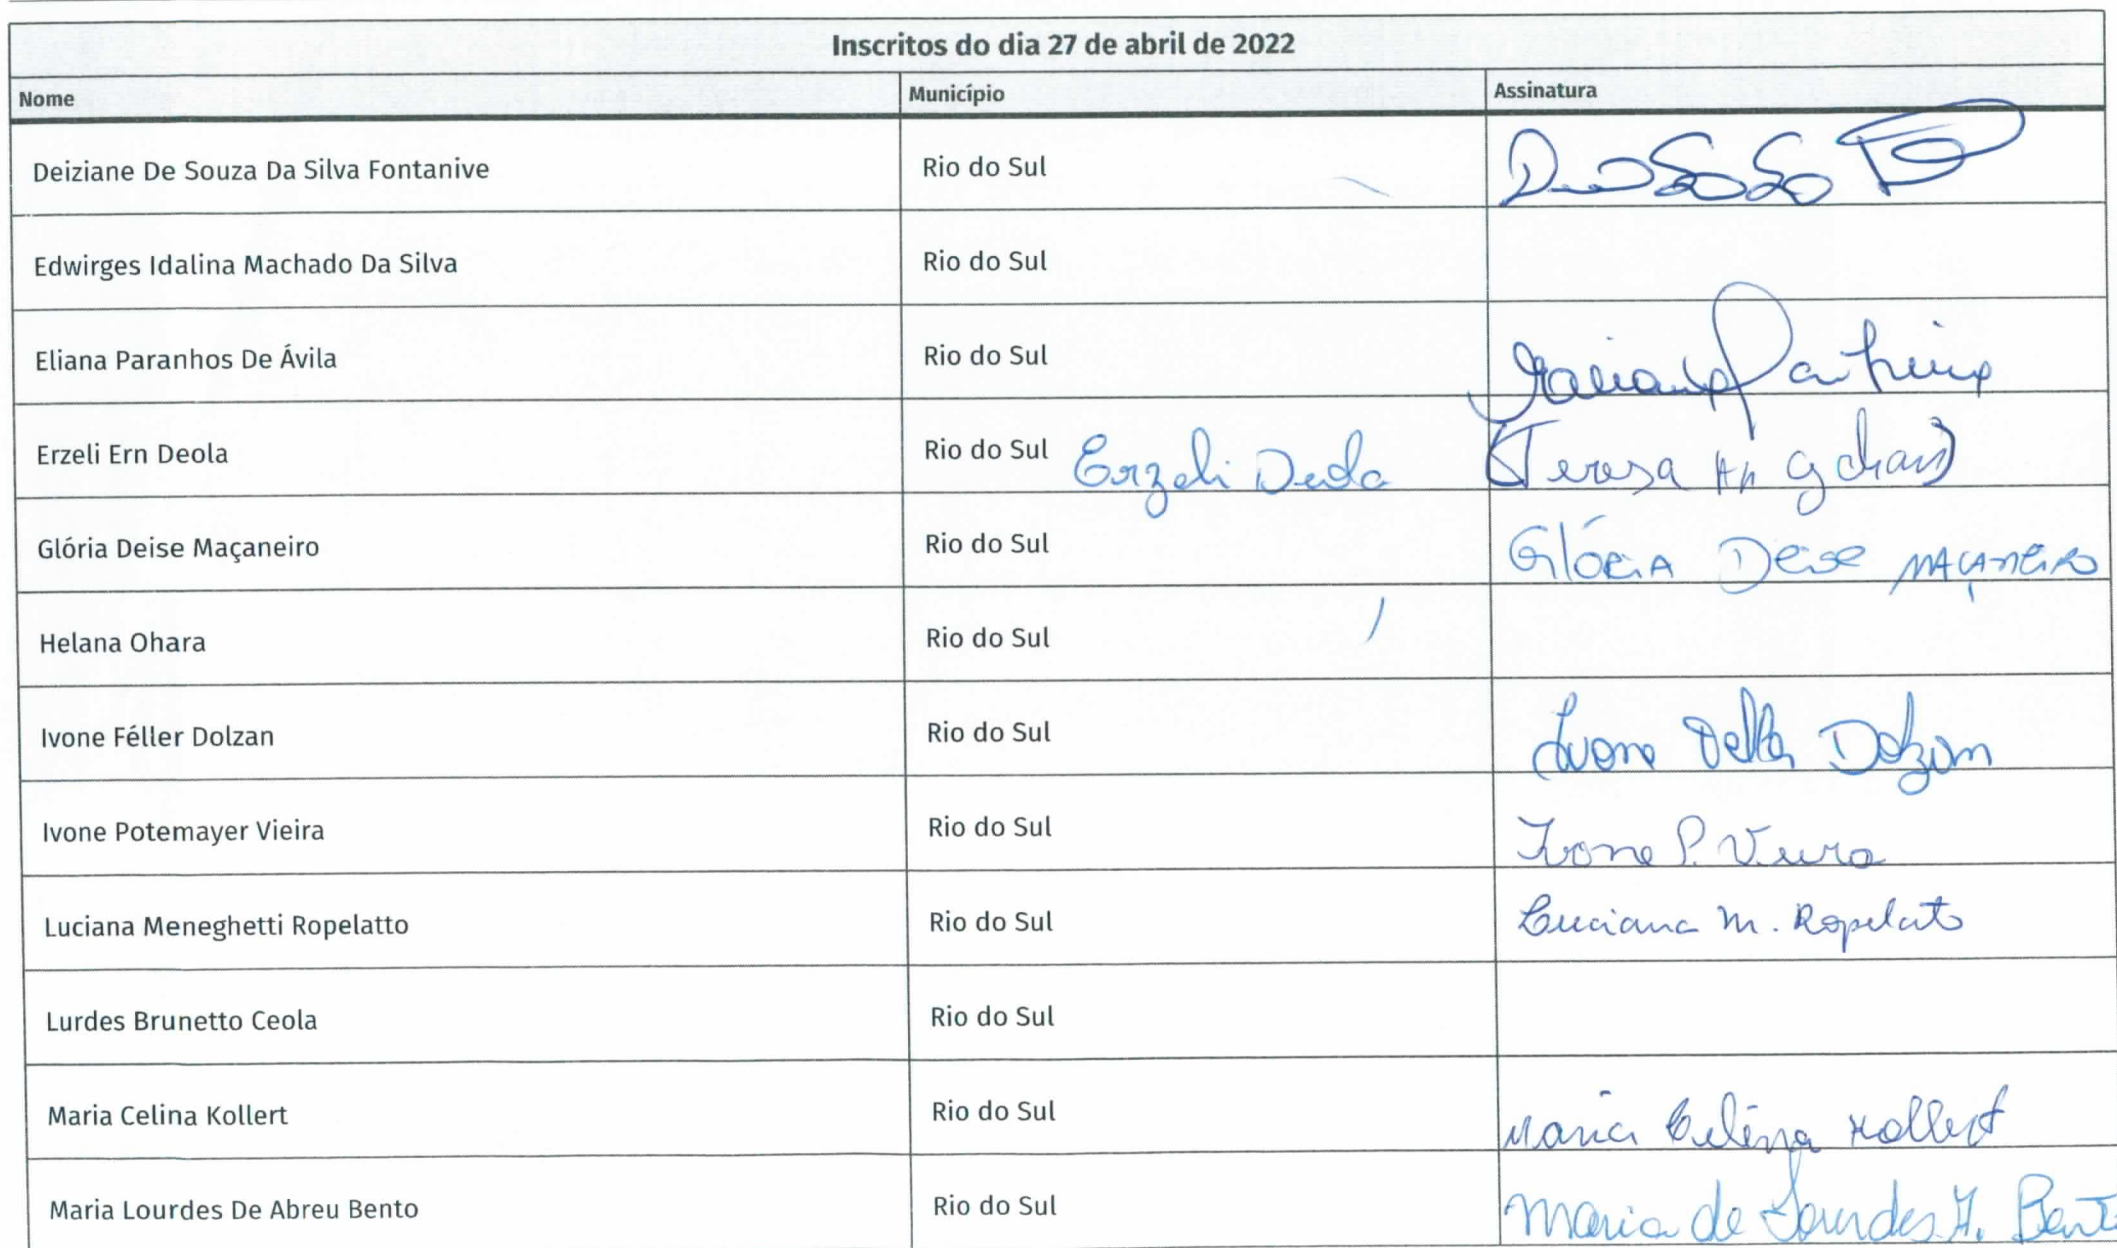 Inscritos do dia 27 de abril de 2022
Nome Município Assinatura
Deiziane De Souza Da Silva Fontanive Rio do Sul
Edwirges Idalina Machado Da Silva Rio do Sul
Eliana Paranhos De Ávila Rio do Sul
Erzeli Ern Deola Rio do Sul Erzeli Deola (Teresa
Glória Deise Maçaneiro Rio do Sul Glória Deise Maçaneiro
Helana Ohara Rio do Sul
Ivone Féller Dolzan Rio do Sul Ivone Dolzan
Ivone Potemayer Vieira Rio do Sul Ivone P. Vieira
Luciana Meneghetti Ropelatto Rio do Sul Luciana M. Ropelato
Lurdes Brunetto Ceola Rio do Sul
Maria Celina Kollert Rio do Sul Maria Celina Kollert
Maria Lourdes De Abreu Bento Rio do Sul Maria de Lourdes A. Bent